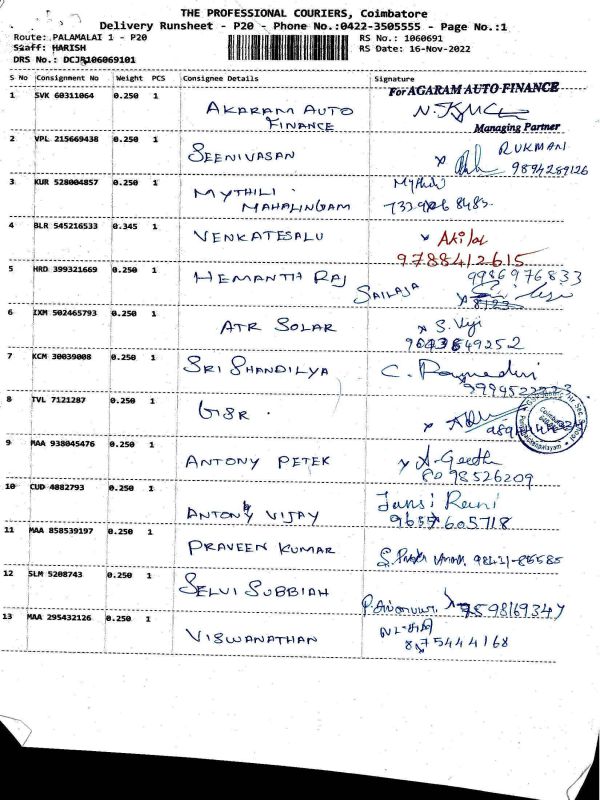 THE PROFESSIONAL COURIERS, Coimbatore
Delivery Runsheet - P20 - Phone No.:0422-3505555 - Page No.:1
Route: PALAMALAI 1 - P20
RS No.: 1060691
Staff: HARISH
RS Date: 16-Nov-2022
DRS No.: DCJ5106069101
S No Consignment No Weight PCS Consignee Details Signature
For AGARAM AUTO FINANCE
1 SVK 60311064 0.250 1 AKARAM AUTO
FINANCE
Managing Partner
2 VPL 215669438 0.250 1 SEENIVASAN RUKMANI
9894289126
3 KUR 528004857 0.250 1 MYTHILI
MAHALINGAM
4 BLR 545216533 0.345 1 VENKATESALU Akila
9788412615
5 HRD 399321669 0.250 1 HEMANTH RAJ 9986976833
SAILAJA
6 IXM 502465793 0.250 1 ATR SOLAR S. Viji
7 KCM 30039008 0.250 1 SRI SHANDILYA
8 TVL 7121287 0.250 1 GSR.
9 MAA 938045476 0.250 1 ANTONY PETER A. Geetha
10 CUD 4882793 0.250 1 ANTONY VIJAY Jansi Rani
11 MAA 858539197 0.250 1 PRAVEEN KUMAR
12 SLM 5208743 0.250 1 SELVI SUBBIAH
13 MAA 295432126 0.250 1 VISWANATHAN
8075444168